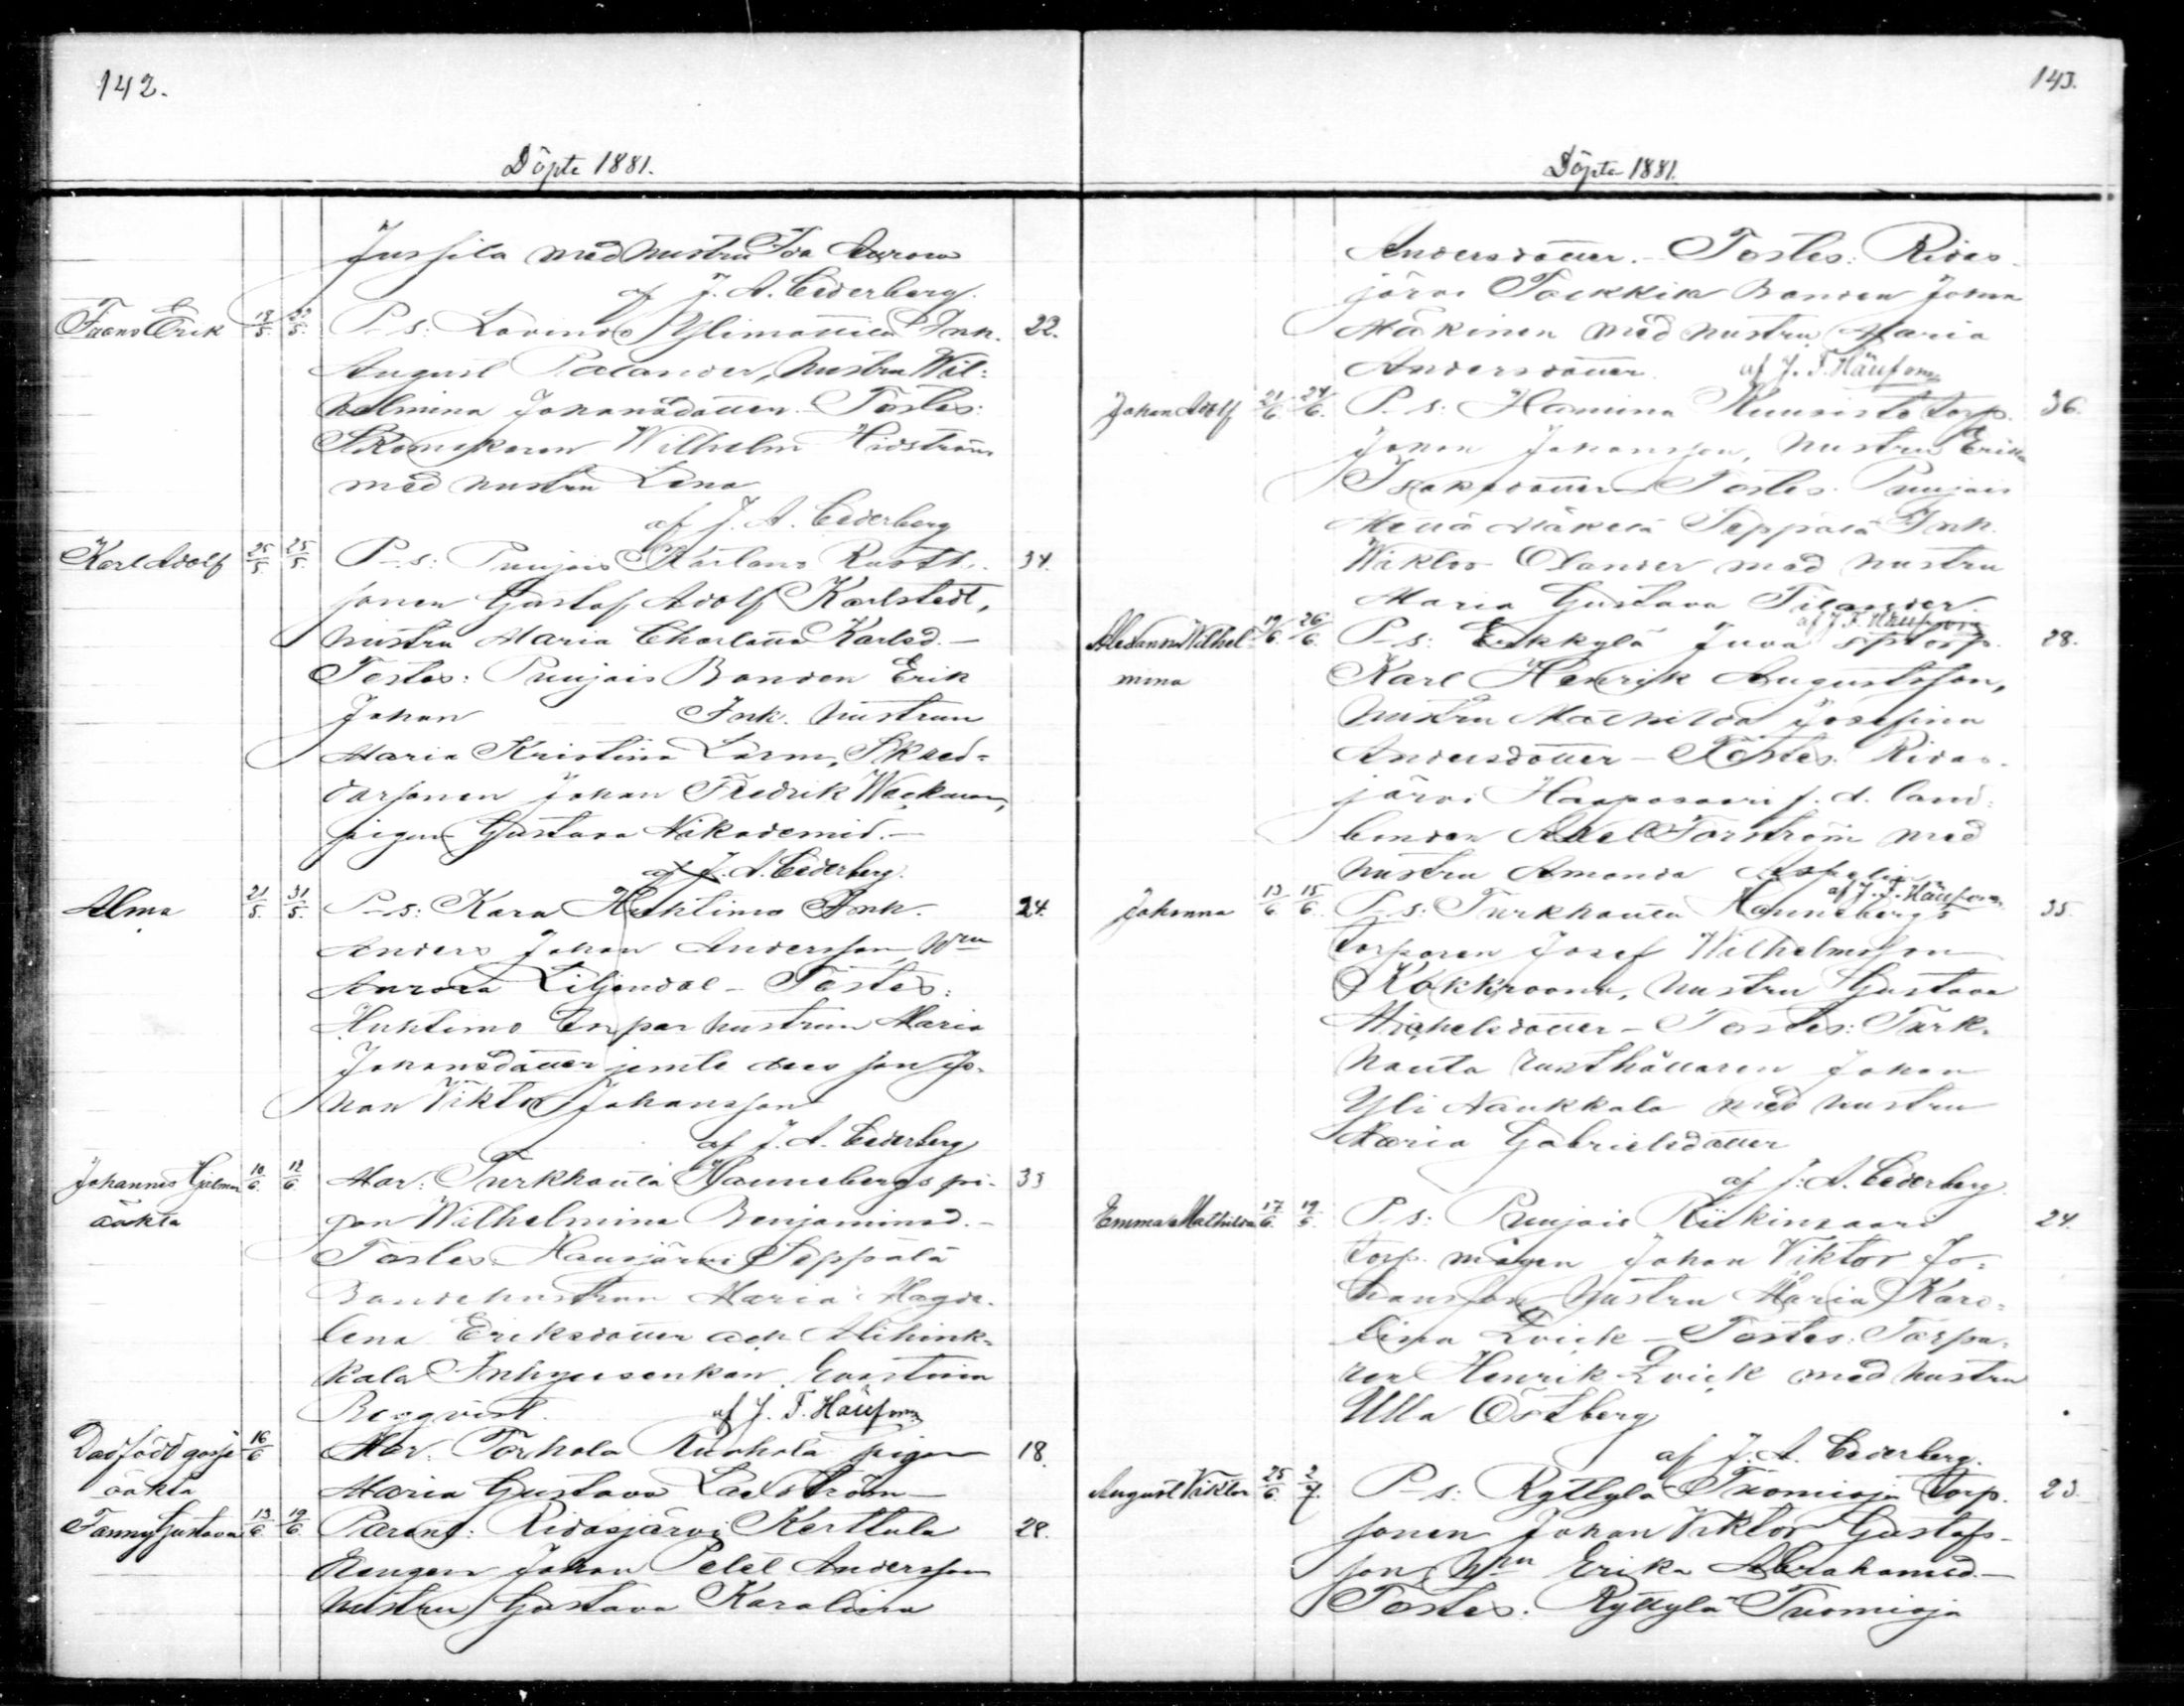 142.
Döpte 1881.
Jussila med hustru Ida Aurora
af J. A. Cederberg.
Frans Erik 19/5. 22/5. P-s: Lavinto Ylimottila Ink. 22.
August Palander, hustru Wil-
helmina Johansdotter. Testes:
Skomakaren Wilhelm Hidström
med hustru Lena
af J. A. Cederberg
Karl Adolf 25/5 25/5. P-s: Puujais Kärlans Rusth. 34.
sonen Gustaf Adolf Karlstedt,
hustru Maria Charlotta Karlsd. -
Testes: Puujais Bonden Erik
Johan Ink. hustrun
Maria Kristina Larm, Skred-
darsonen Johan Fredrik Weckman,
pigan Gustava Nikodemid. -
af J. A. Cederberg.
Alma 21/5. 31/5. P-s: Kara Huhtimo Ink. 24.
Anders Johan Andersson, hru
Aurora Liljendal - Testes:
Huhtimo torpar hustrun Maria
Johansdotter jemte dess son Jo-
han Viktor Johansson
af J. A. Cederberg
Johannes Hjalmar 10/6. 12/6. Mor: Turkhauta Hannebergs pi- 33
oäkta gan Wilhelmina Benjaminsd. -
Testes: Hausjärvi Seppälä
Bondehustrun Maria Magda-
lena Eriksdotter och Mihink-
kala Inhysesenkan Eva Stina
Bergqvist. af J. F.
Dödfödd gosse 16/6 Mor: Torhola Ruohola pigan 18.
oäkta Maria Gustava Ladström -
Fanny Gustava 13/6 19/6. Parent: Ridasjärvi Kerttula 28.
drengen Johan Petel Andersson
hustru Gustava Karolina
143.
Döpte 1881.
Andersdotter. - Testes: Ridas-
järvi Bonden Johan
Mäkinen med hustru Maria
Andersdotter. af J. F.
Johan Adolf 21/6. 24/6. P-s: Hamina Kuusisto torp. 36.
Johan Johansson, hustru Erika
Isaksdotter - Testes: Puujais
Mäkelä Seppälä Ink.
Wiktor Olander med hustru
Maria Gustava Tilander.
af J. F.
Alexandra Wilhel- 19/6. 26/6. P-s: Erkkylä Juva sptorp. 28.
mina Karl Henrik Augustsson,
hustru Mathilda Josefina
Andersdotter - Testes: Ridas-
järvi Haaposaari f. d. land-
bonden Axel Forström med
hustru Amanda Aspelin
af J. F.
Johanna 13/6 15/6. P-s: Turkhauta Hannebergs 35
torparen Josef Wilhelmsson
Kokkroona, hustru Gustava
Michelsdotter - Testes: Turk-
hauta rusthållaren Johan
Yli Naukkala med hustru
Maria Gabrielsdotter
af J. A. Cederberg.
Emma Mathilda 17/6. 19/6. P-s: Puujais Riikinsaari 24.
torp. mågen Johan Viktor Jo-
hansson hustru Maria Karo-
lina Qvick - Testes: Torpa-
ren Henrik Qvick med hustru
Ulla Östberg
af J. A. Cederberg.
August Viktor 25/6. 2/7. P-s: Ryttylä Tuomioja torp. 23.
sonen Johan Viktor Gustafs-
son, hru Erika Abrahamsd. -
Testes: Ryttylä Tuomioja